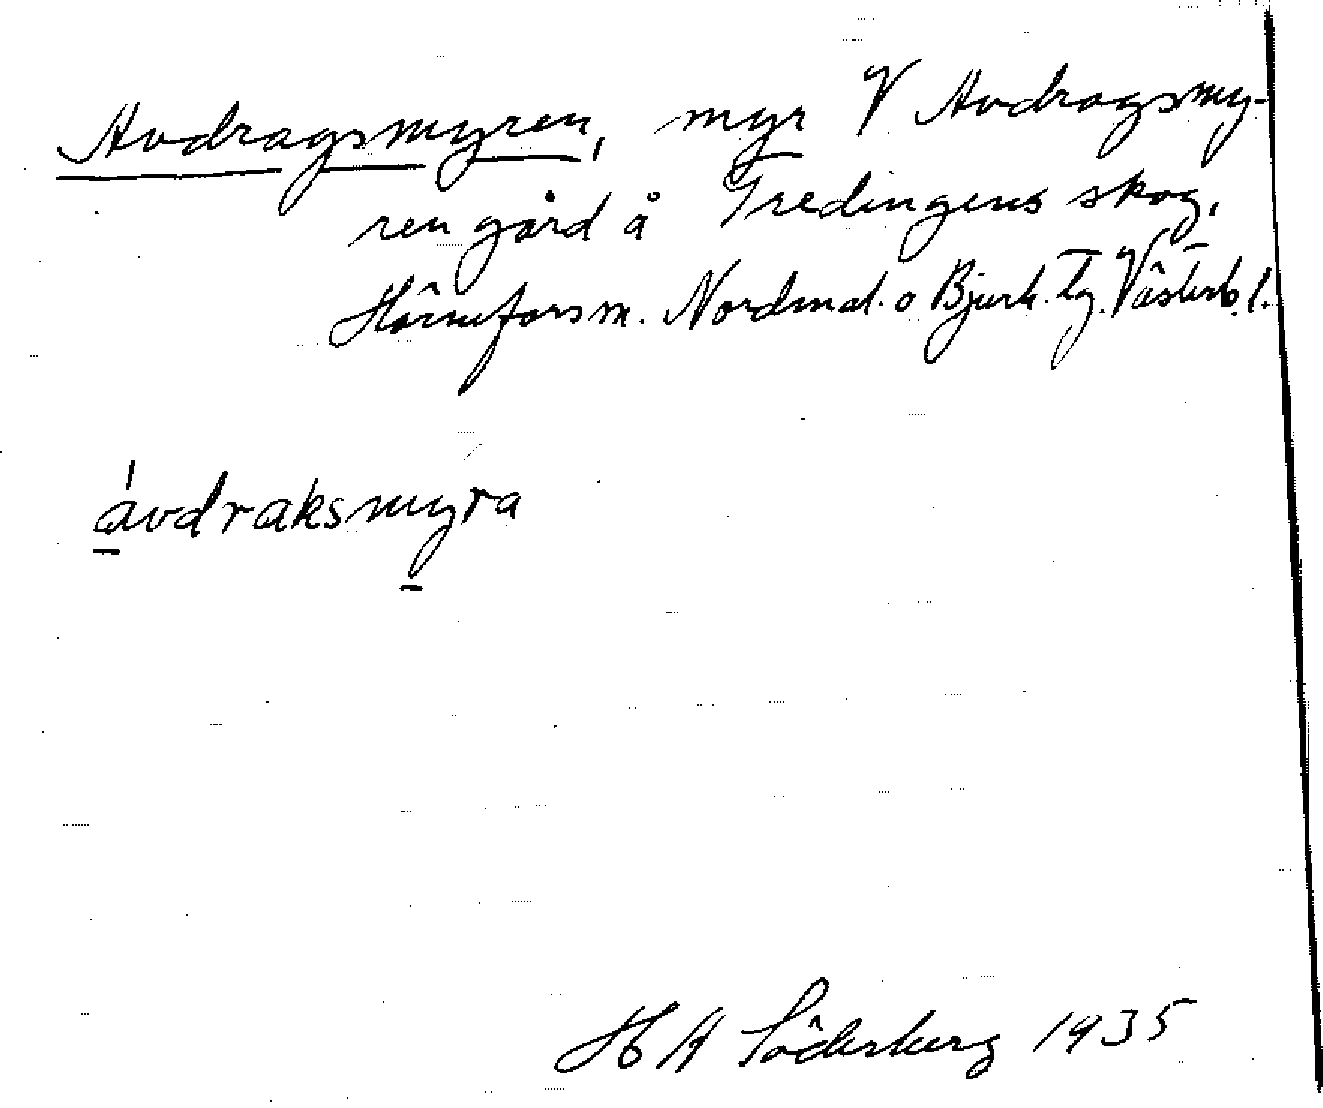 Avdragsmyren, myr V Avdragsmy-
ren gård å Tredingens skog,
Hörnefors m. Nordmal. o Bjurh. Tg. Västerb. l.
ávdraksmyra
H A Söderberg 1935